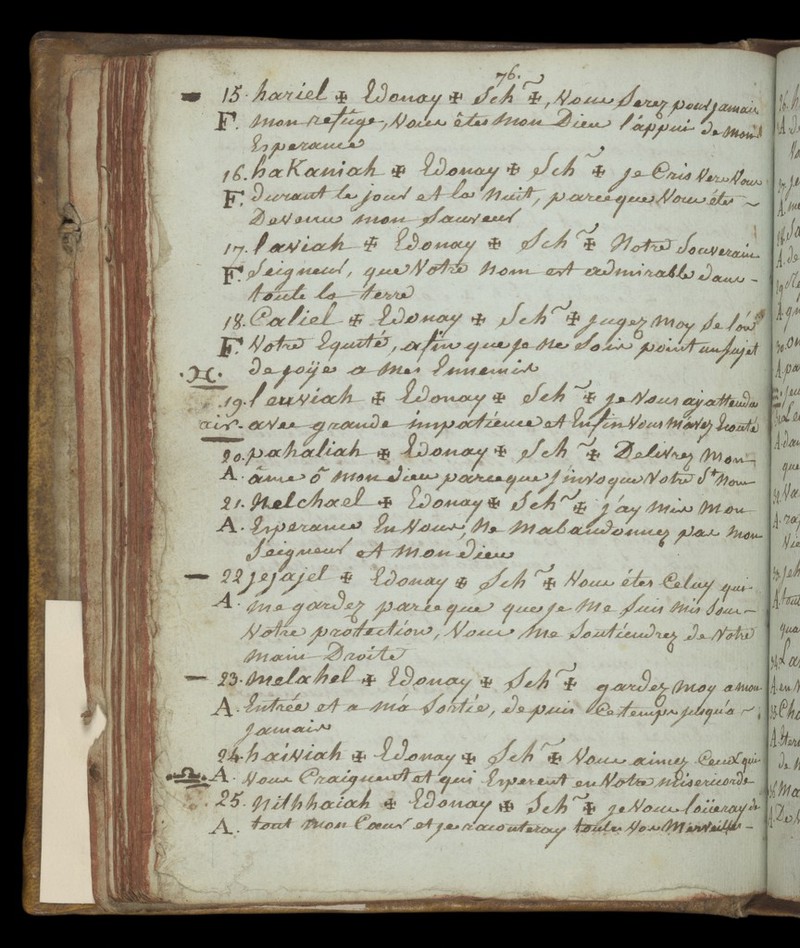 76.
15. hariel ✠ Edonay ✠ Sch~ ✠, Vous Serez pour jamais
F. mon refuge, Vous êtes mon Dieu l'appui de mon
Esperance
16. haKaniah ✠ Edonay ✠ Sch~ ✠ je Cris Vers Vous
F. Durant le jour et la Nuit, parceque Vous étes ~
Devenu mon Sauveur
17. laviah ✠ Edonay ✠ Sch~ ✠ Notre Souverain
F. Seigneur, que Votre Nom est admirable dans -
toute la terre
18. Caliel ✠ Edonay ✠ Sch~ ✠ jugez moy Selon
F. Votre Equité, afin que je ne Sois point un Sujet
♓ de joÿe a mes Ennemis
19. leuviah ✠ Edonay ✠ Sch~ ✠ je Vous ay attendu
air. avec grande impatience et Enfin Vous m'avez Ecouté
20. pahaliah ✠ Edonay ✠ Sch~ ✠ Delivrez mon
A. âme ô mon dieu parceque j'invoque Votre St Nom
21. Nelchael ✠ Edonay ✠ Sch~ ✠ j'ay mis mon
A. Esperance En Vous, Ne mabandonnez pas mon
Seigneur et mon dieu
22 jejajel ✠ Edonay ✠ Sch~ ✠ Vous étes Celuy qui
A. me gardez parceque que je me Suis mis Sous -
Votre protection, Vous me Soutiendrez de Votre
main Droite
23. melahel ✠ Edonay ✠ Sch~ ✠ gardez moy a mon
A. Entrée et a ma Sortie, depuis Ce temps jusqu'a ~
jamais
24. haiviah ✠ Edonay ✠ Sch~ ✠ Vous aimez Ceux qui
♎ A. Vous Craignent et qui Esperent en Votre misericorde
25. Nithhaiah ✠ Edonay ✠ Sch~ ✠ je Vous loüeray de
A. tout mon Cœur et je raconteray toutes Vos Merveilles -